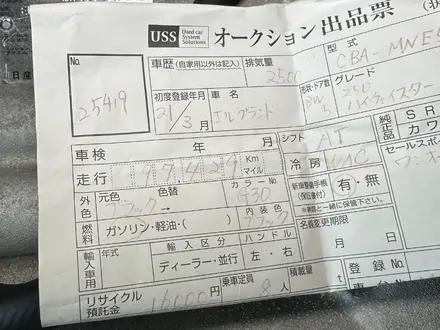 USS Used car System Solutions オークション 出品票
No. 25419
車歴 (自家用以外は記入) 排気量 2500
型式 CBA-MNE
初度登録年月 21/3月
車名 エルグランド
形状・ドア数 5
グレード 250 ハイウェイスター
車検
シフト AT
純正品 S R カワ
走行 97429 Km マイル
冷房 AC
セールスポ
ワンオ
外色 元色 ブラック → 色替
カラーNo. 
内装色 ブラック
新車整備手帳 (保証書付) 有・無
※車と一緒に保管下さい。
燃料 ガソリン・軽油・( )
名義変更期限 月 日
輸入車用 年式 輸入区分 ディーラー・並行 ハンドル 左・右
リサイクル預託金 16000円
乗車定員 8人
積載量 t
登録No.
車台
日産